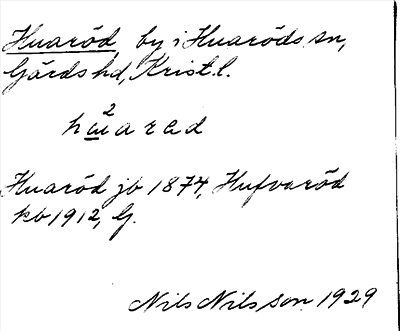 Huaröd, by i Huaröds sn,
Gärds hd, Krist. l.
2
huarad
Huaröd jb 1874, Hufvaröd
kb 1912, G.
Nils Nilsson 1929